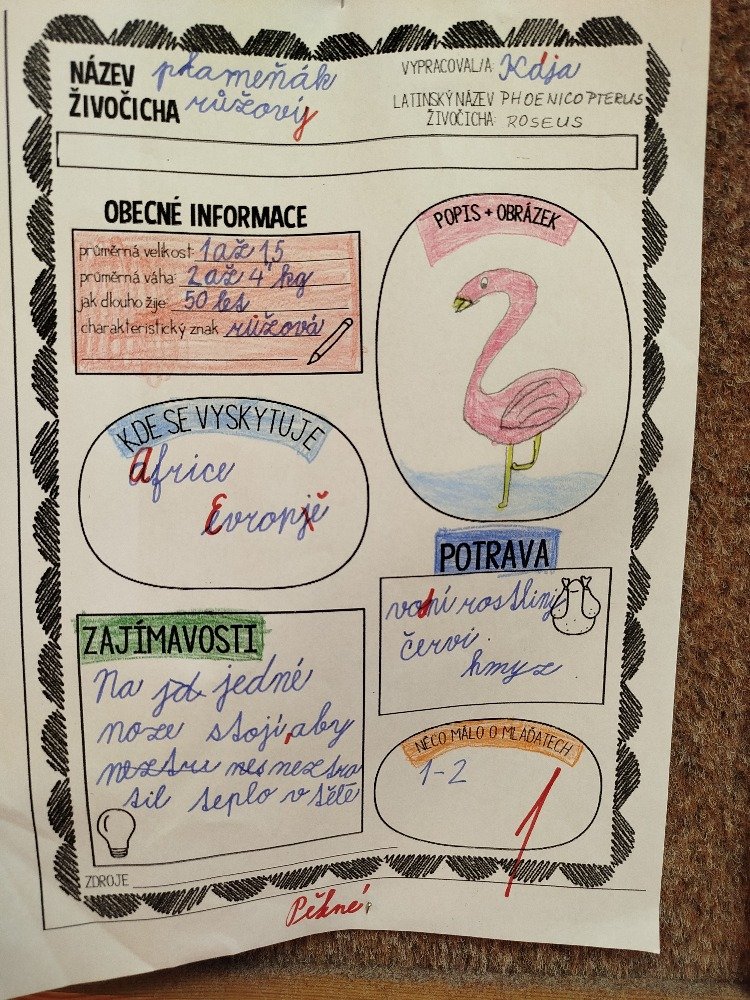 NÁZEV ŽIVOČICHA
plameňák
růžový
VYPRACOVAL/A: Kája
LATINSKÝ NÁZEV ŽIVOČICHA: PHOENICOPTERUS
ROSEUS
OBECNÉ INFORMACE
průměrná velikost: 1 až 1,5
průměrná váha: 2 až 4 kg
jak dlouho žije: 50 let
charakteristický znak růžová
POPIS + OBRÁZEK
KDE SE VYSKYTUJE
Africe
Evropě
POTRAVA
vodní rostliny
červi
hmyz
ZAJÍMAVOSTI
Na jedné
noze stojí, aby
neztra
til teplo v těle
NĚCO MÁLO O MLÁĎATECH
1-2
1
ZDROJE
Pěkné!